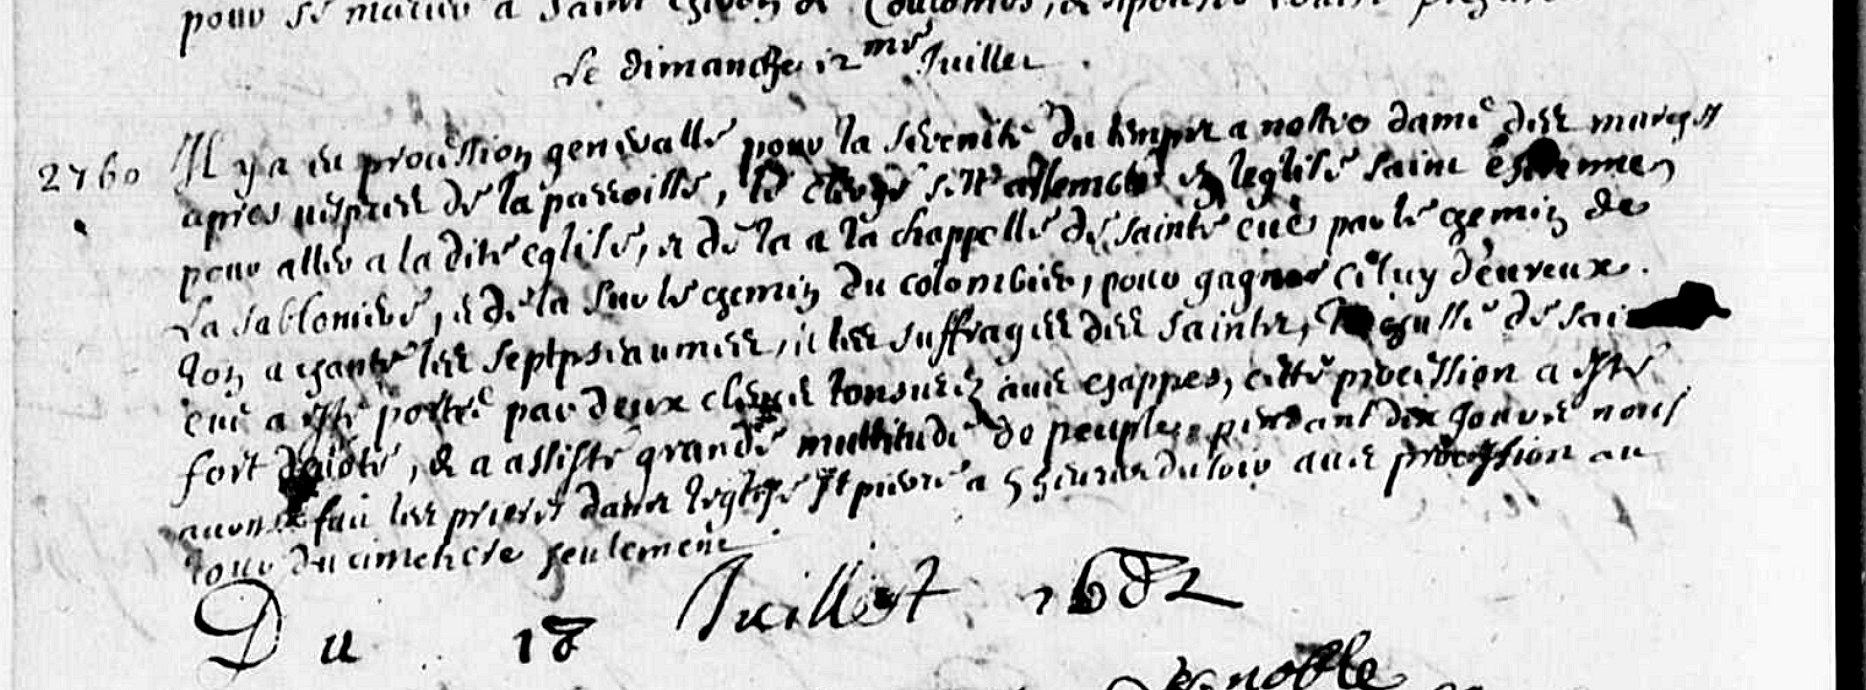 pour se marier a Saint
Le dimanche 12me Juillet .
2760 Il y a eu procession generalle pour la serenite du temps a nostre dame des marests
apres vespres de la parroisse, le clerge s'est assemble en leglise saint estienne
pour aller a la dite eglise, & de la a la chappelle de sainte eue par le chemin de
La sabloniere, & de la sur le chemin du colombier, pour gagner celuy d'eureux.
lon a chanté les sept pseaumes, et les suffrages des saints, la chasse de sainte
eue a esté portée par deux clercs tonsurez auec chappes, cette procession a esté
fort deuote, & a assisté grande multitude de peuple, pendant dix jours nous
auons fait les prieres dans leglise st pierre a 5 heures du soir auec procession au
tour du cimetiere seulement .
Du 18 Juillet 1682
noble